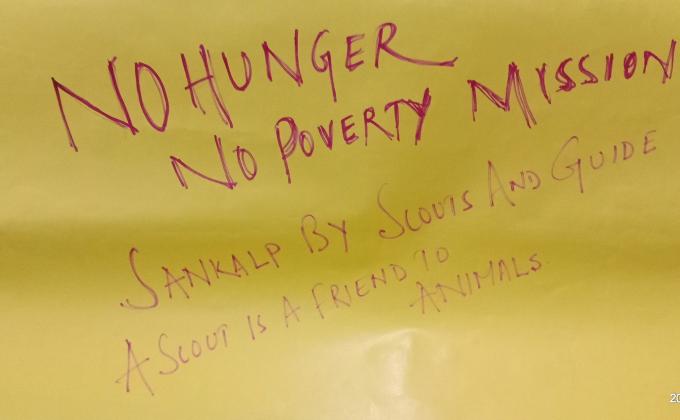 NO HUNGER
NO POVERTY MISSION
SANKALP BY SCOUTS AND GUIDE
A SCOUT IS A FRIEND TO
ANIMALS.
20